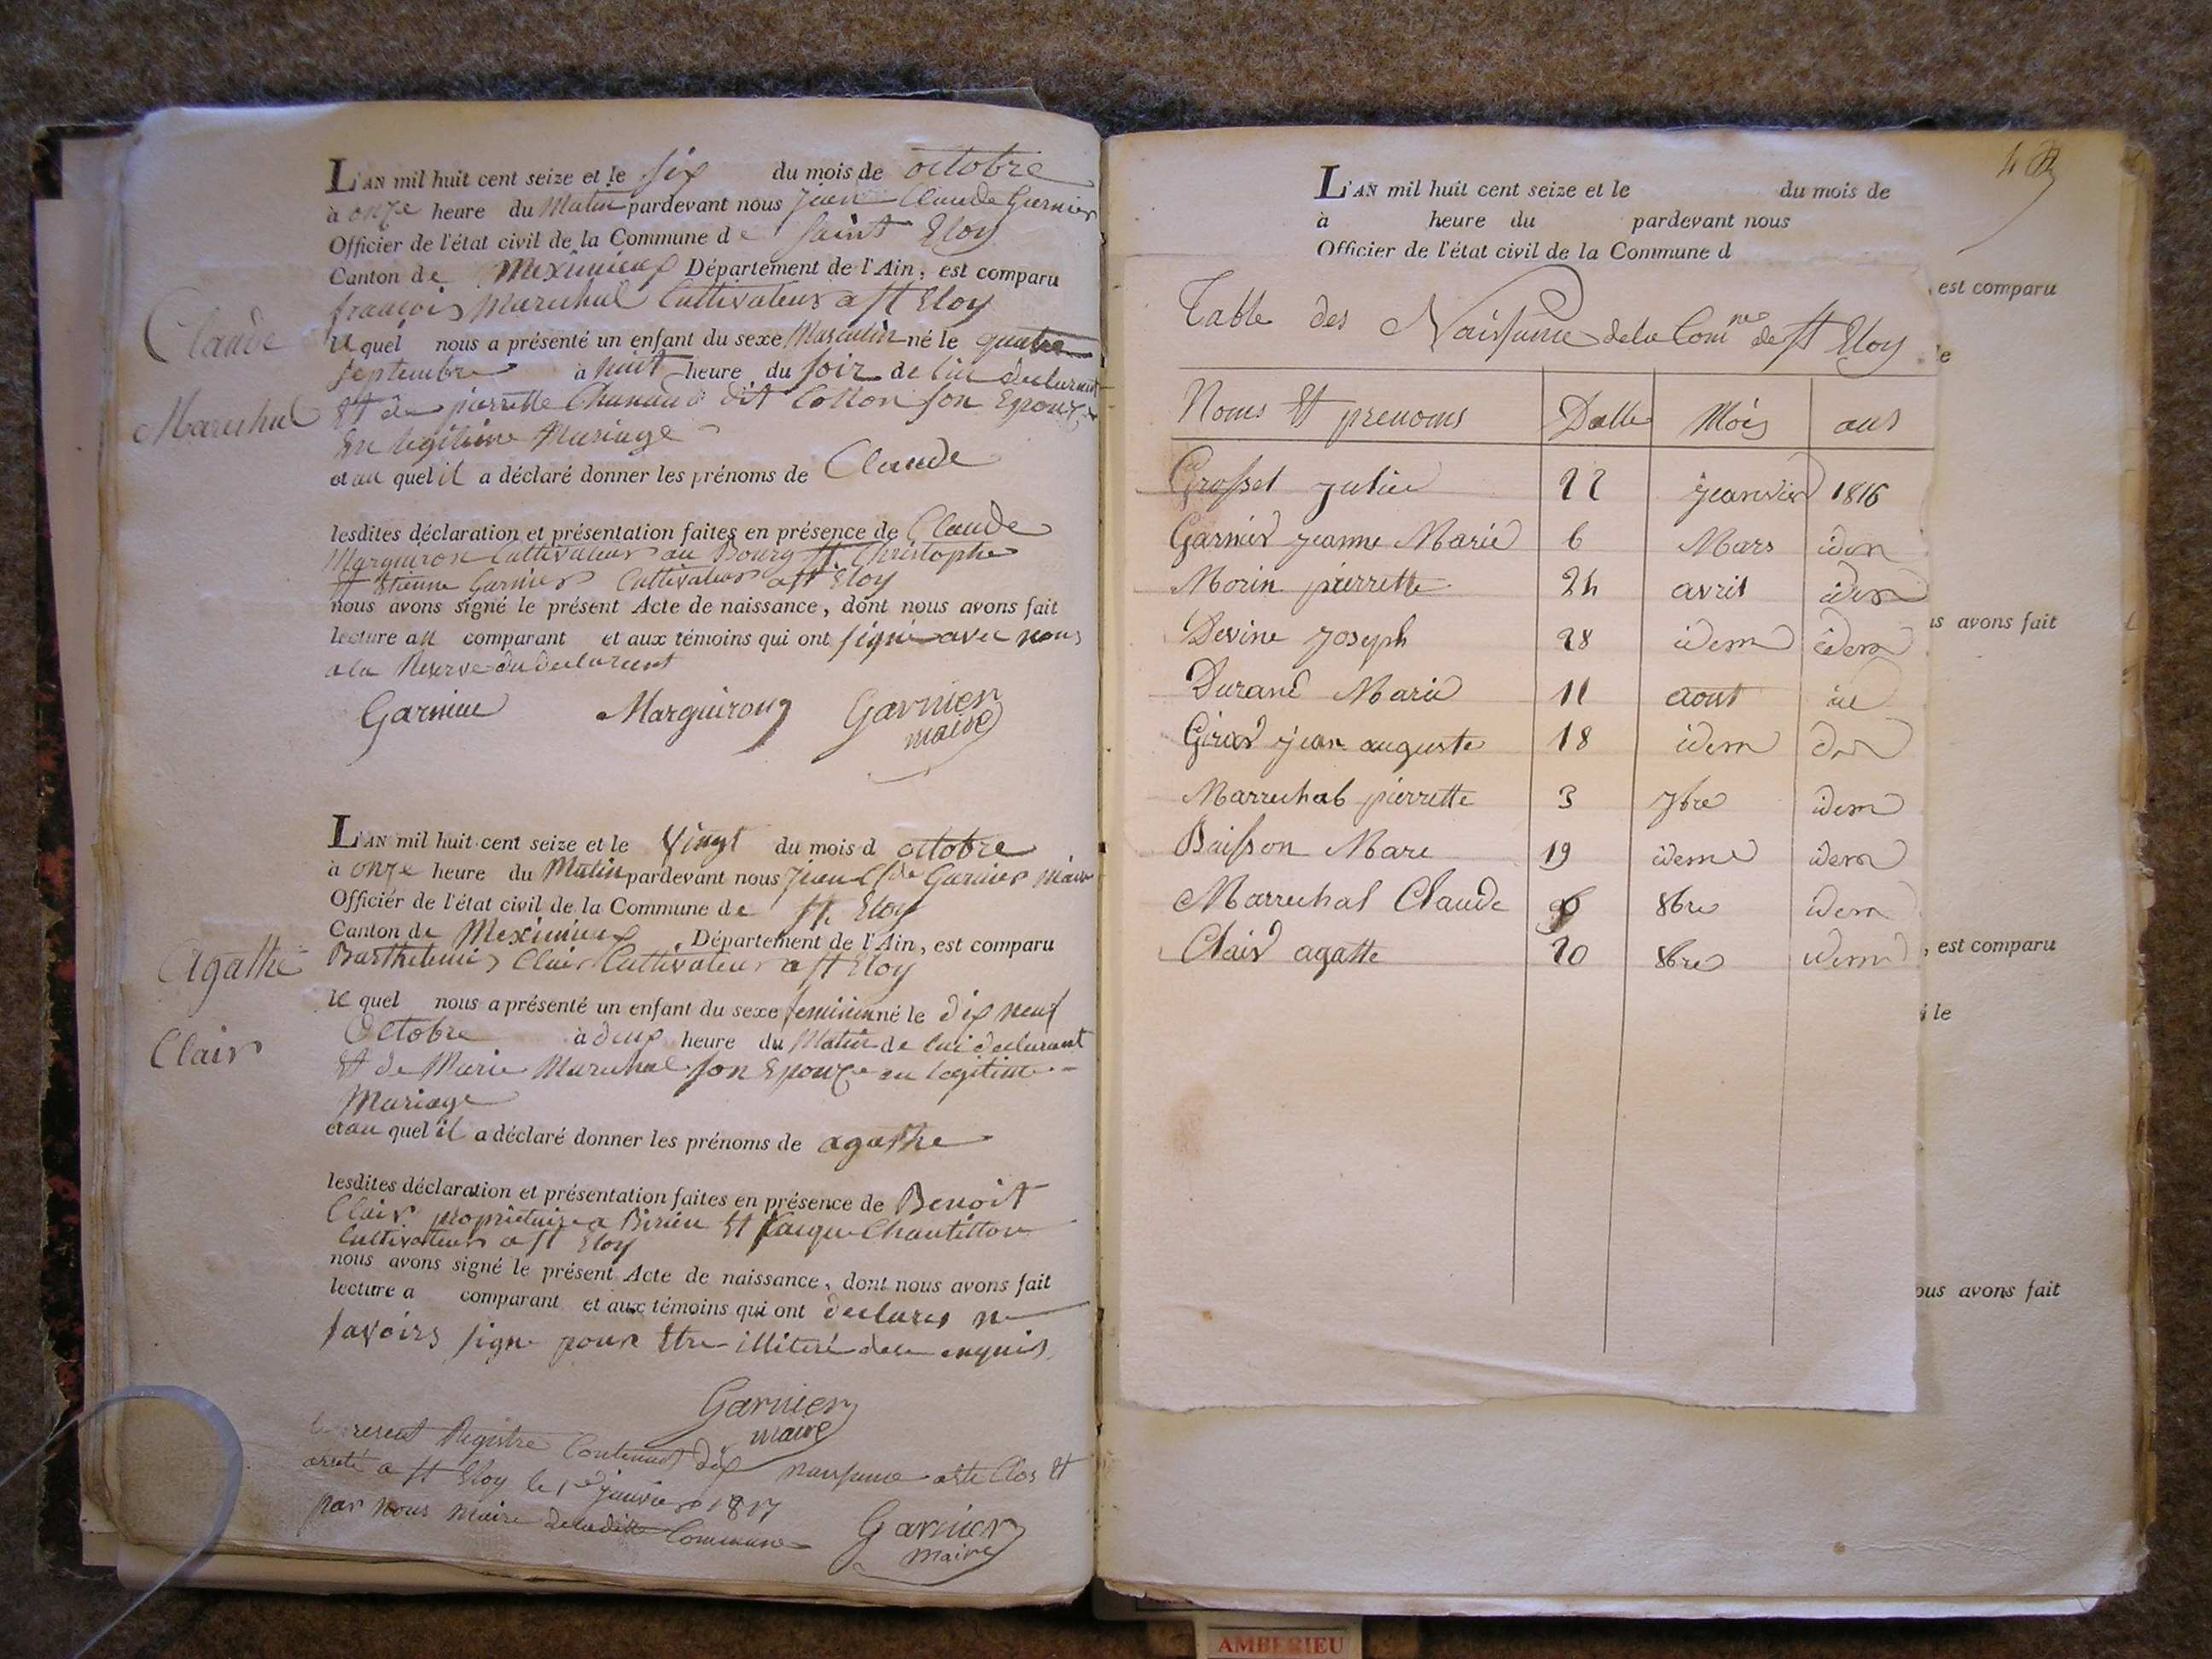 L'AN mil huit cent seize et le six du mois de octobre
à onze heure du Matin pardevant nous jean Claude Garnier
Officier de l'état civil de la Commune de Saint Eloy
Canton de Meximieux Département de l'Ain, est comparu
françois Marechal Cultivateur a st Eloy
Claude
le quel nous a présenté un enfant du sexe Masculin né le quatre
septembre à huit heure du soir de lui declarant
Marechal
Et de pierrette Chanaud dit Cotton son Epouze
En legitime Mariage
et au quel il a déclaré donner les prénoms de Claude
lesdites déclaration et présentation faites en présence de Claude
Marguiron Cultivateur au Bourg st Christophe
et Etienne Garnier Cultivateur a st Eloy
nous avons signé le présent Acte de naissance, dont nous avons fait
lecture au comparant et aux témoins qui ont signé avec nous
a la Reserve du declarant
Garnier Marguiron Garnier
maire
L'AN mil huit cent seize et le Vingt du mois d octobre
à onze heure du Matin pardevant nous jean Cde Garnier maire
Officier de l'état civil de la Commune de st Eloy
Canton de Meximieux, Département de l'Ain, est comparu
Barthelemis Clair Cultivateur a st Eloy
Agathe
le quel nous a présenté un enfant du sexe feminin né le dix neuf
Octobre à deux heure du Matin de lui declarant
Clair
Et de Marie Marechal son Epouze en legitime
Mariage
et au quel il a déclaré donner les prénoms de agathe
lesdites déclaration et présentation faites en présence de Benoit
Clair propriétaire a Birieu Et Jacque Chantillon
Cultivateur a st Eloy
nous avons signé le présent Acte de naissance, dont nous avons fait
lecture a comparant et aux témoins qui ont declarer ne
savoirs signe pour Etre illiteré de ce enquis
Garnier
maire
le present Registre Contenant dix naissance a ete Clos Et
areté a st Eloy le 1er janvier 1817
par nous maire de ladite Commune
Garnier
maire
L'AN mil huit cent seize et le du mois de
à heure du pardevant nous
Officier de l'état civil de la Commune d
, est comparu
Table des Naissance de la Comne de st Eloy
le
Noms Et prenoms Datte Mois ans
Grosset julie 22 jeanvier 1816
Garnier jeanne Marie 6 Mars idem
Morin pierrette 24 avril idem
us avons fait
Devine joseph 28 idem idem
Durand Marie 11 aout id
Girard jean auguste 18 idem idem
Marrechal pierrette 3 7bre idem
Buisson Marc 19 idem idem
Marrechal Claude 6 8bre idem
Clair agatte 20 8bre idem
, est comparu
é le
ous avons fait
AMBERIEU